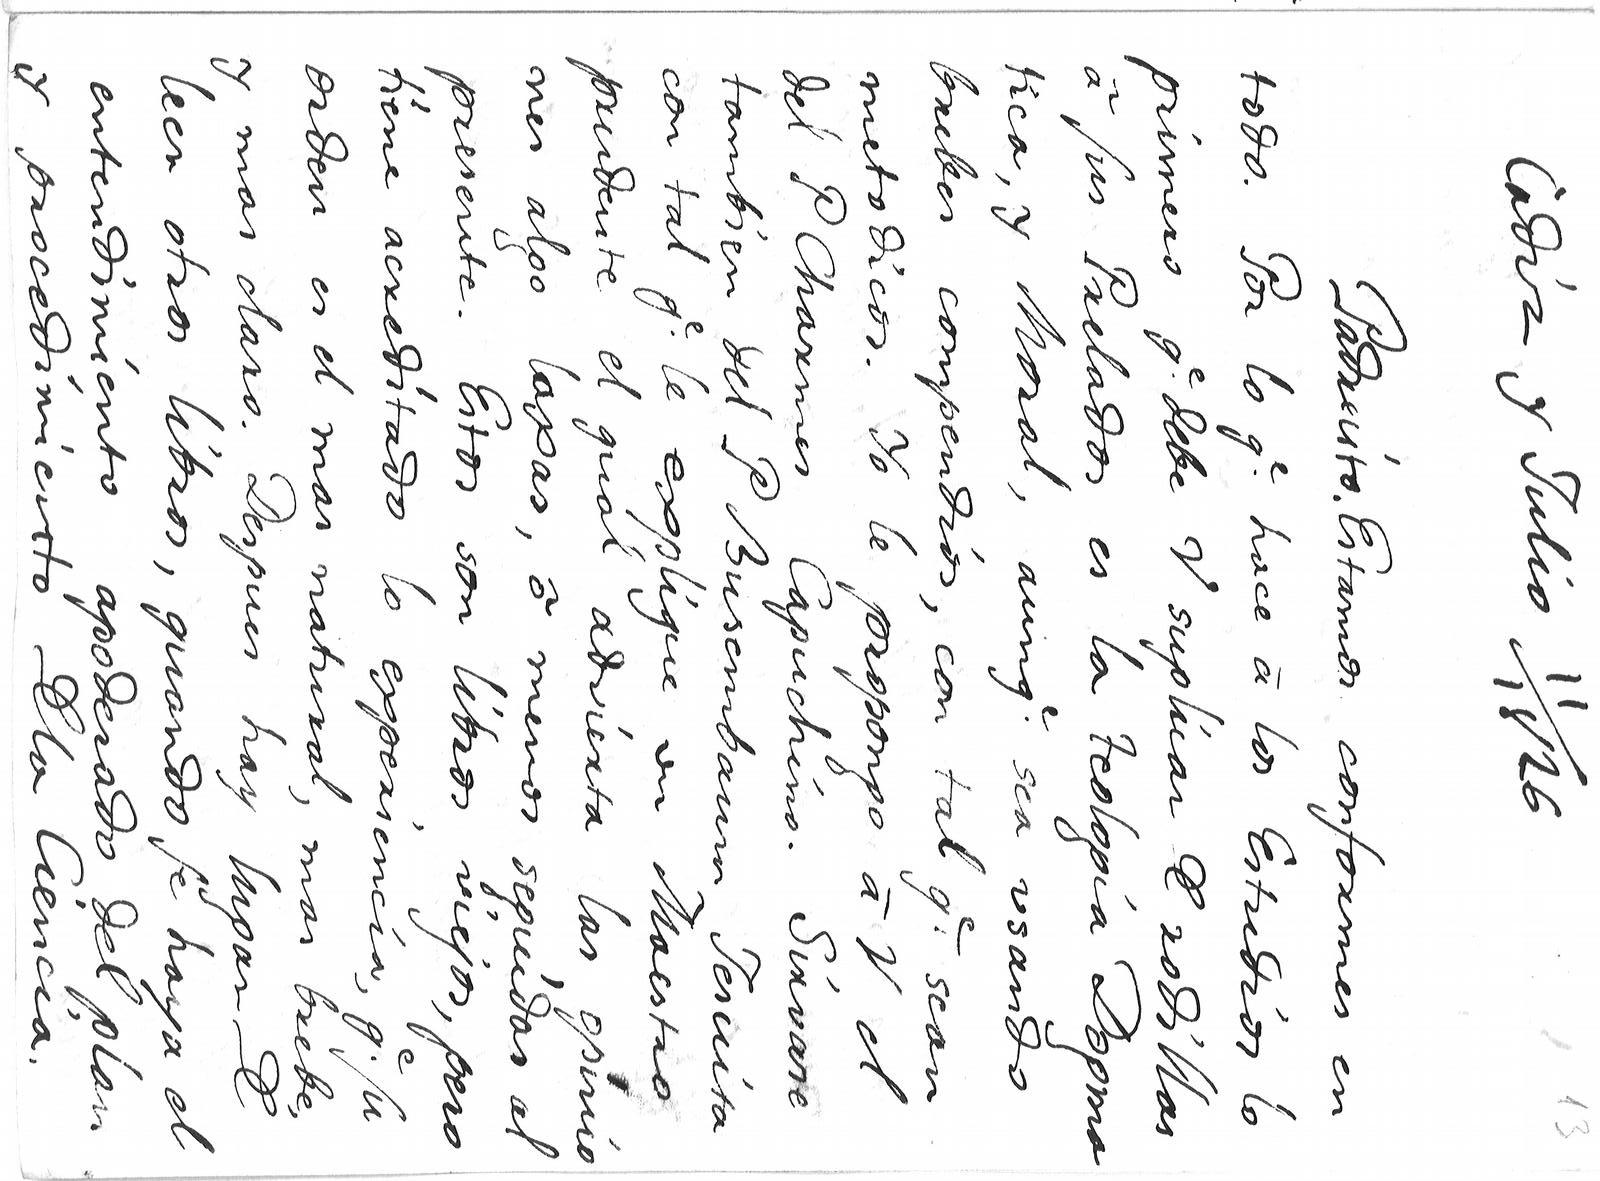 13
Cadiz y Julio 11/1826
Padrusito. Estamos conformes en
todo. Por lo q.e hace à los Estudios lo
primero q.e debe V suplicar de rodillas
à sus Prelados es la teología Dogma
tica, y Moral, aunq.e sea usando
brebes compendios, con tal q.e sean
metodicos. Yo le propongo à V el
del P Charmes Capuchino. Sirvase
tambien del P Busembaum Jesuita
con tal q.e le esplique un Maestro
prudente el qual advierta las opinio
nes algo laxas, ò menos seguidas al
presente. Estos son libros viejos, pero
tiene acreditado la esperiencia, q.e su
orden es el mas natural, mas brebe,
y mas claro. Despues hay lugar de
leer otros libros, quando se haya el
entendimiento apoderado del plan
y procedimiento de la Ciencia.